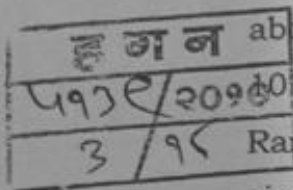 ह ग न ab
५१३९/२०१७
३/१८ Ra